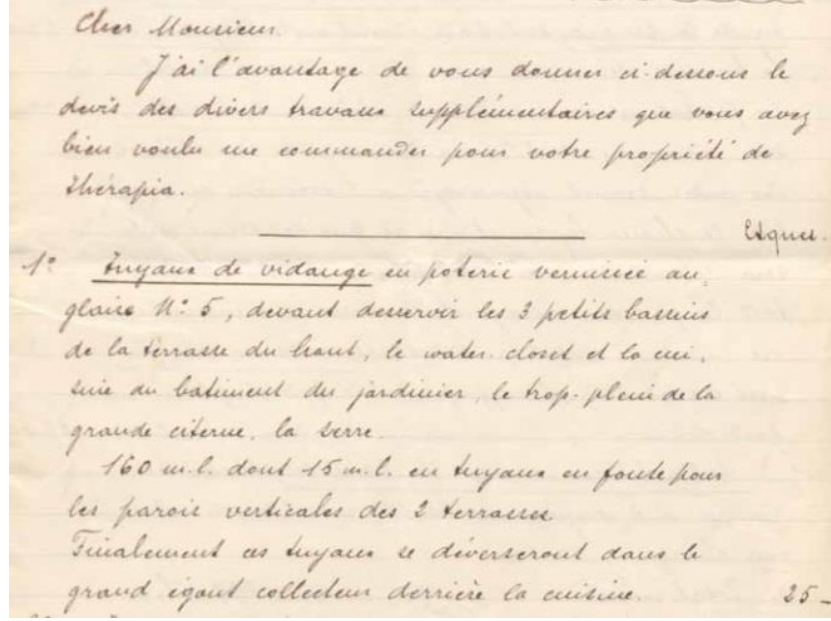 Cher Monsieur
J'ai l'avantage de vous donner ci-dessous le
devis des divers travaux supplémentaires que vous avez
bien voulu me commander pour votre propriété de
Thérapia.
Ltques.
1° Tuyaux de vidange en poterie vernissée an-
glaise N° 5, devant desservir les 3 petits bassins
de la terrasse du haut, le water-closet et la cui-
sine du batiment du jardinier, le trop-plein de la
grande citerne, la serre.
160 m.l. dont 15 m.l. en tuyaux en fonte pour
les parois verticales des 2 terrasses.
Finalement ces tuyaux se déverseront dans le
grand égout collecteur derrière la cuisine. 25-